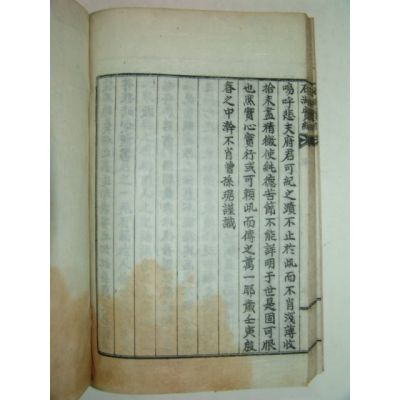 嗚呼悲夫府君可紀之蹟不止於此而不肖淺薄收
拾未盡精微使純德苦節不能詳明于世是固可恨
也然實心實行或可賴此而傳之萬一耶歲壬寅殷
春之中澣不肖曾孫琚謹識